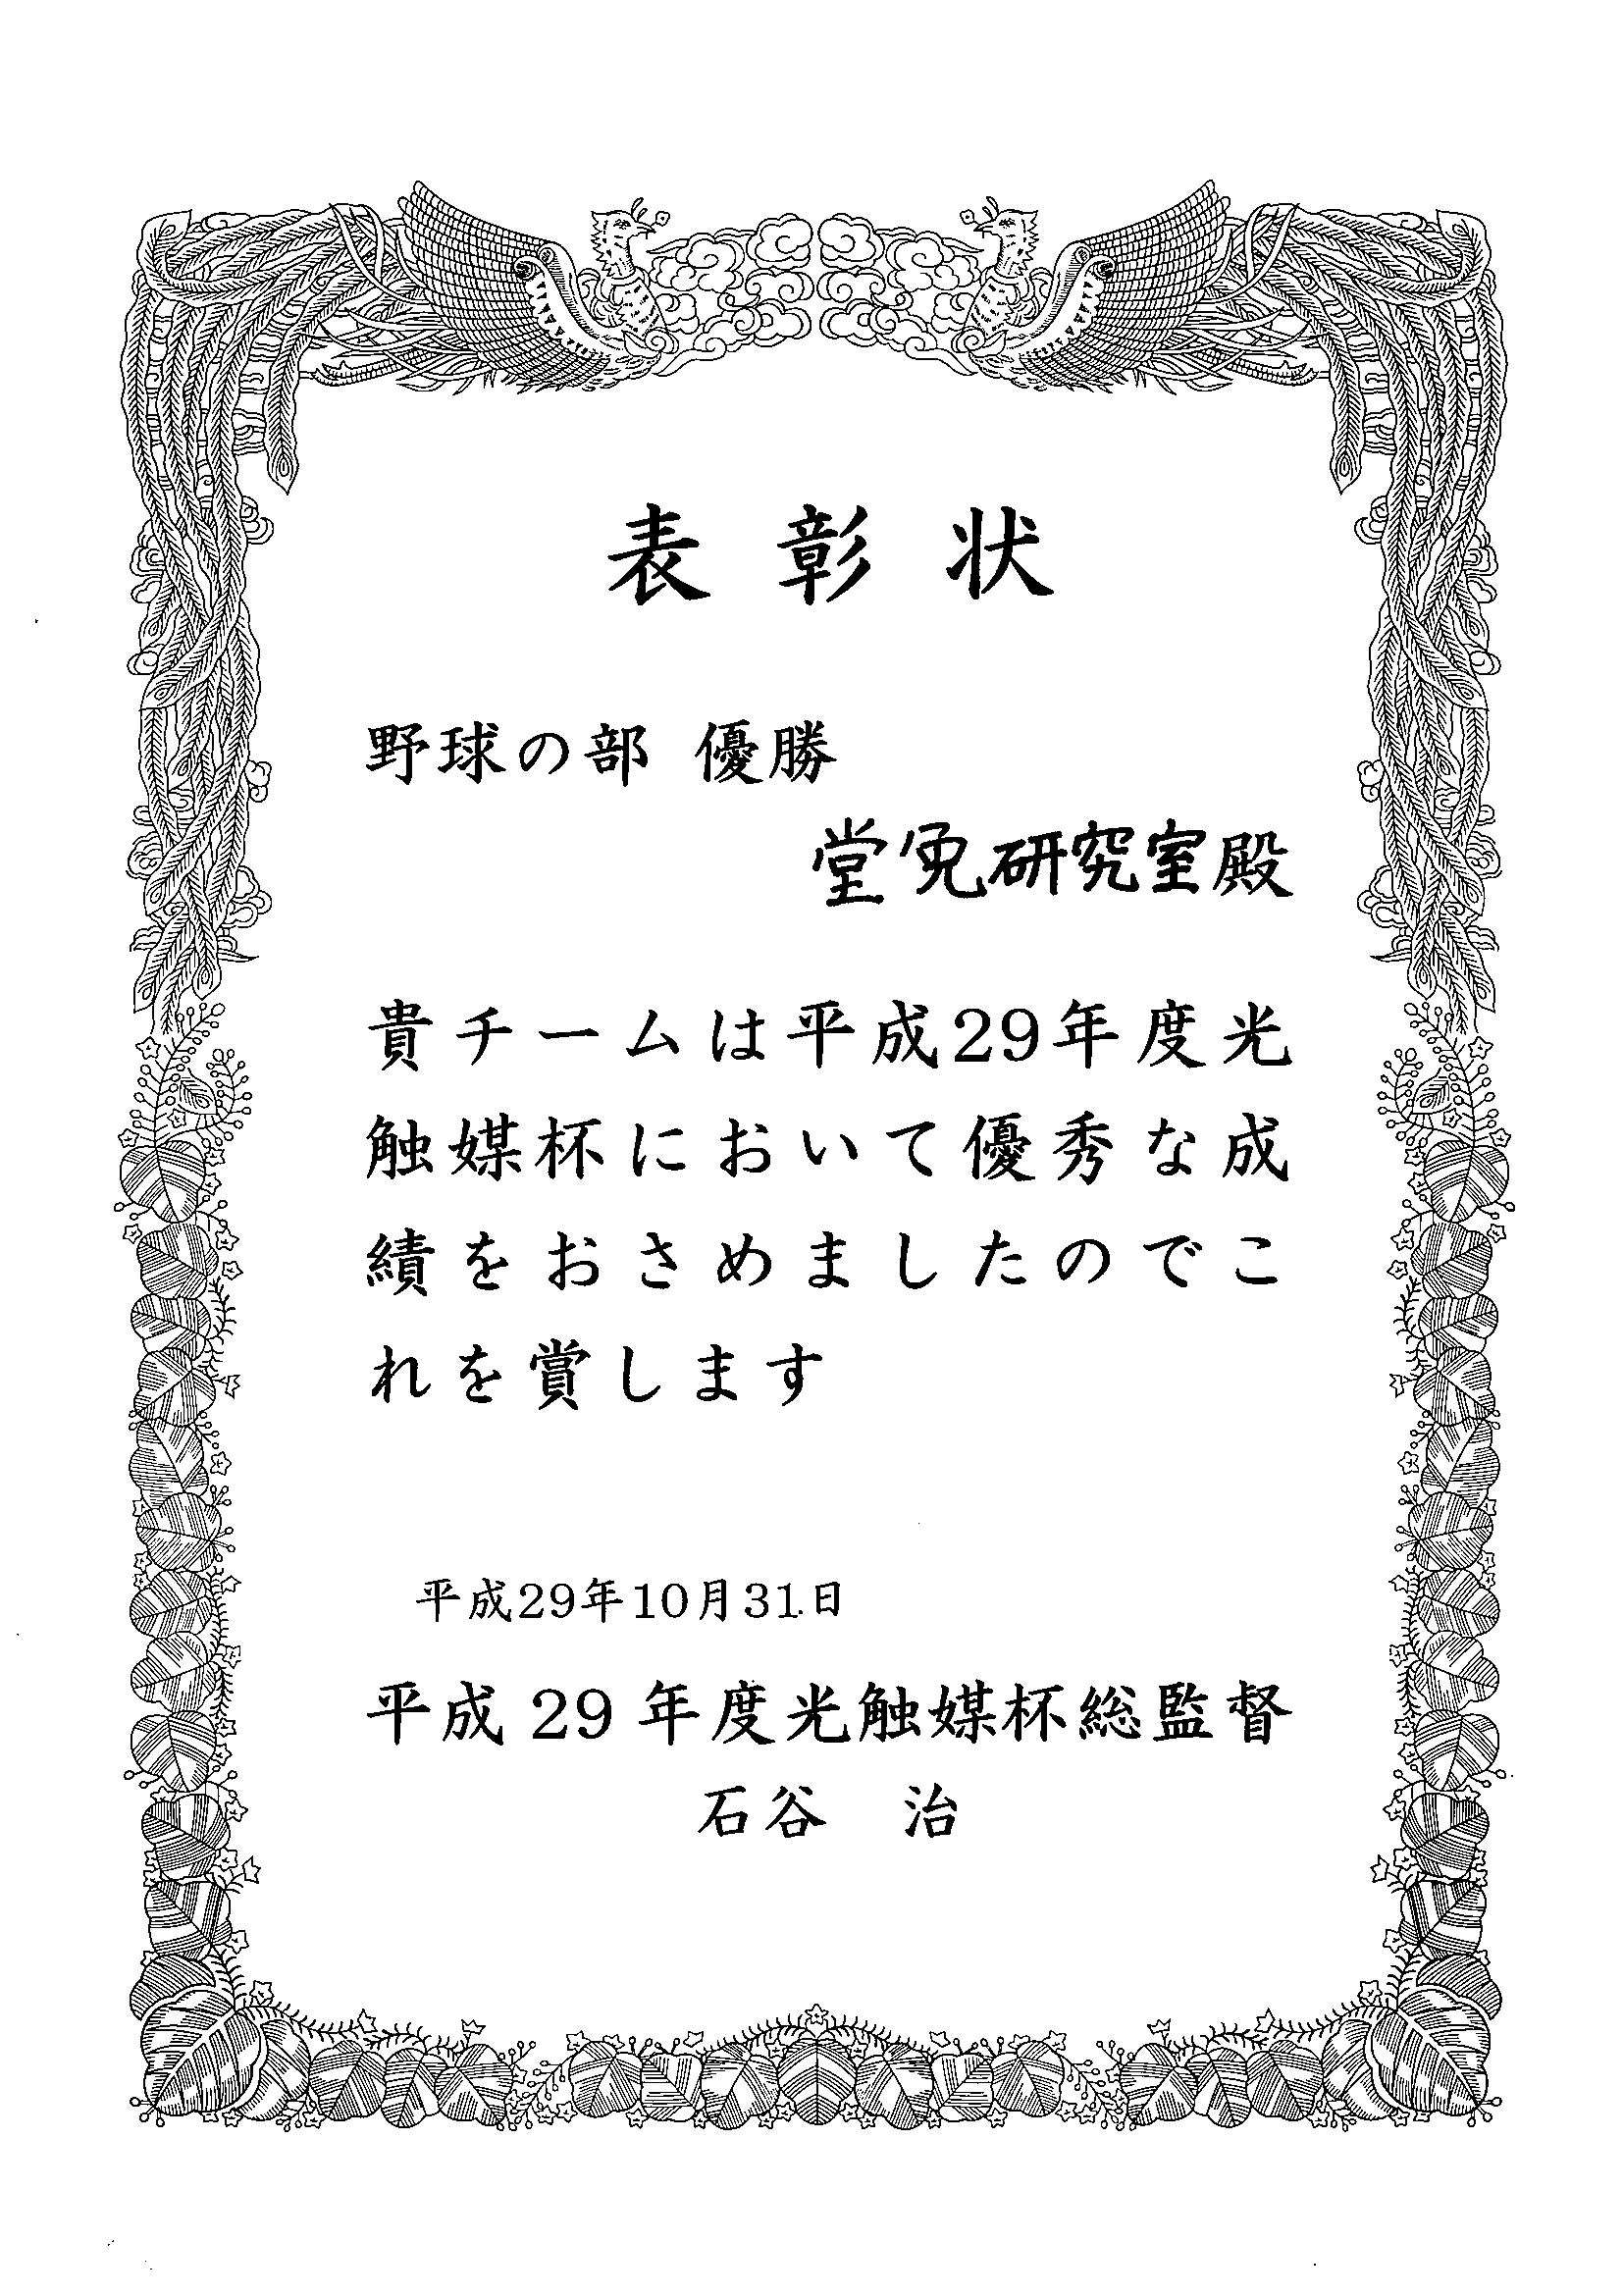 表彰状
野球の部 優勝
堂免研究室殿
貴チームは平成29年度光
触媒杯において優秀な成
績をおさめましたのでこ
れを賞します
平成29年10月31日
平成 29 年度光触媒杯総監督
石谷 治